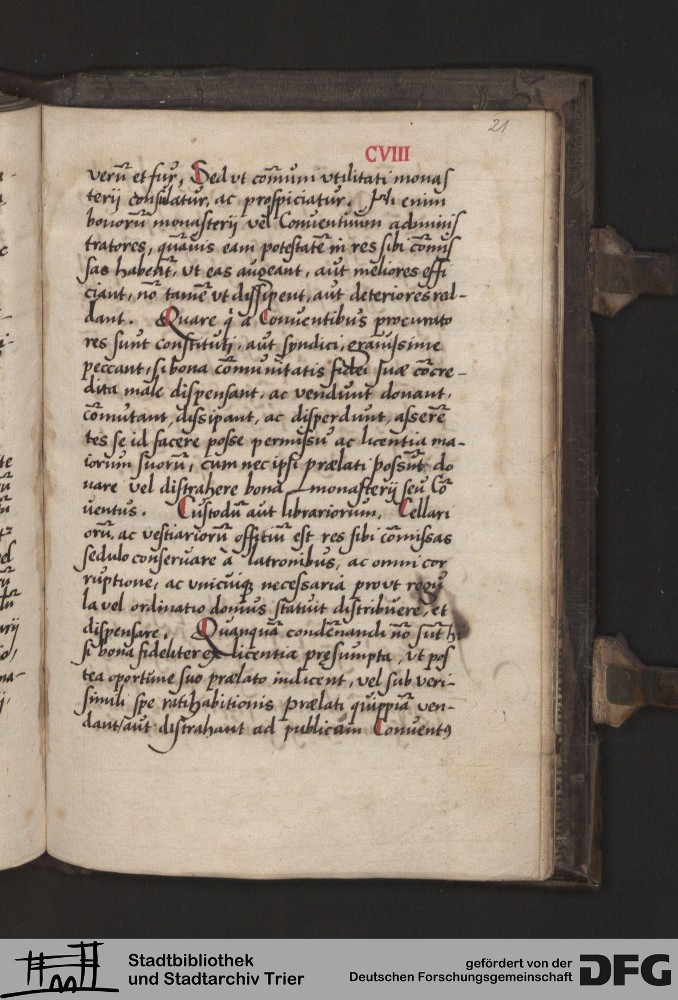 21
CVIII
verū et fur, Sed vt com̄uni vtilitati monas
terij consulatur, ac prospiciatur. Ipsi enim
bonorū monasterij vel Conuentuum adminis
tratores, quāuis eam potestatē in res sibi com̄is
sas habeāt, vt eas augeant, aut meliores effi
ciant, nō tamē vt dissipent, aut deteriores red-
dant. Quare q̇ a Conuentibus procurato
res sunt constituti, aut syndici, grauissime
peccant, si bona com̄unitatis fidei suæ cōcre-
dita male dispensant, ac vendunt donant,
com̄utant, dissipant, ac disperdunt, asserē
tes se id facere posse permissu ac licentia ma-
iorum suorū, cum nec ipsi prælati possint do
nare vel distrahere bona monasterij seu Cō
uentus. Custodū aut librariorum, Cellari
orū, ac vestiariorū offitiū est res sibi com̄issas
sedulo conseruare à latronibus, ac omni cor
ruptione, ac vnicuiq; necessaria prout regu
la vel ordinatio domus statuit distribuere, et
dispensare. Quanquā condēnandi nō sūt hi
si bona fide licentia pręsumpta, vt pos
tea oportune suo prælato indicent, vel sub veri-
simili spe ratihabitionis prælati quippiā ven-
dant, aut distrahant ad publicam Conuentꝰ
Stadtbibliothek
und Stadtarchiv Trier
gefördert von der
Deutschen Forschungsgemeinschaft
DFG